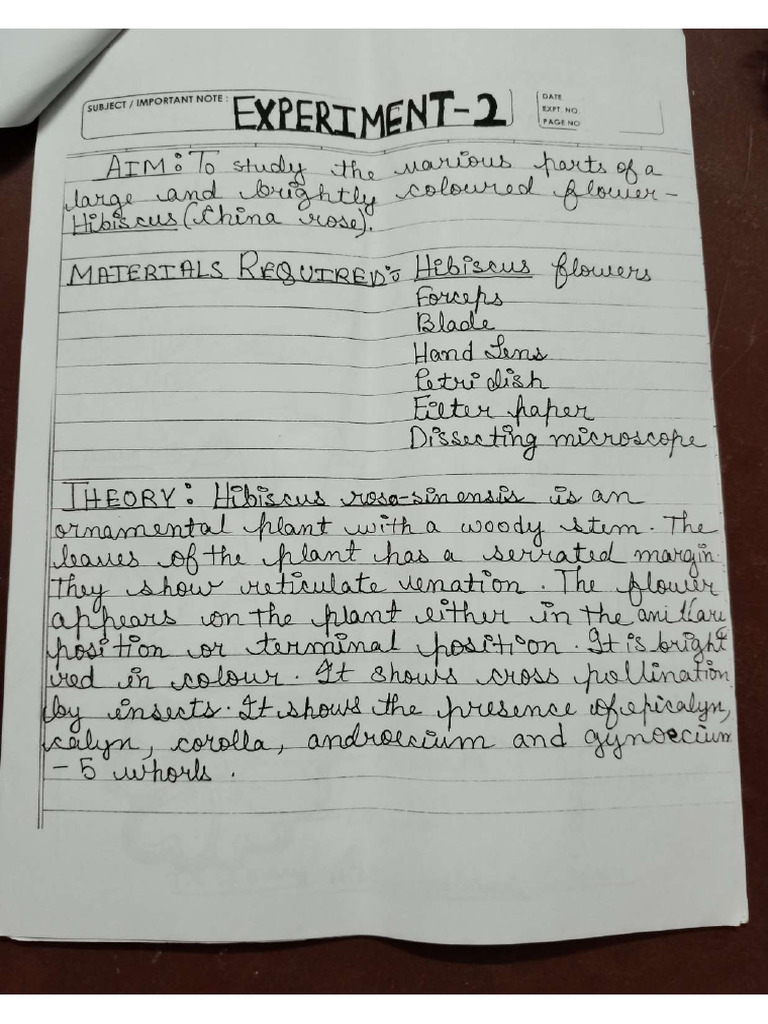 SUBJECT / IMPORTANT NOTE :
EXPERIMENT-2
DATE
EXPT. NO.
PAGE NO
AIM: To study the various parts of a
large and brightly coloured flower-
Hibiscus (China rose).
MATERIALS REQUIRED: Hibiscus flowers
Forceps
Blade
Hand Lens
Petri dish
Filter paper
Dissecting microscope
THEORY: Hibiscus rosa-sinensis is an
ornamental plant with a woody stem. The
leaves of the plant has a serrated margin.
They show reticulate venation. The flower
appears on the plant either in the
position or terminal position. It is bright
red in colour. It shows cross pollination
by insects. It shows the presence of epicalyn,
calyn, corolla, androecium and gynoecium
- 5 whorls.